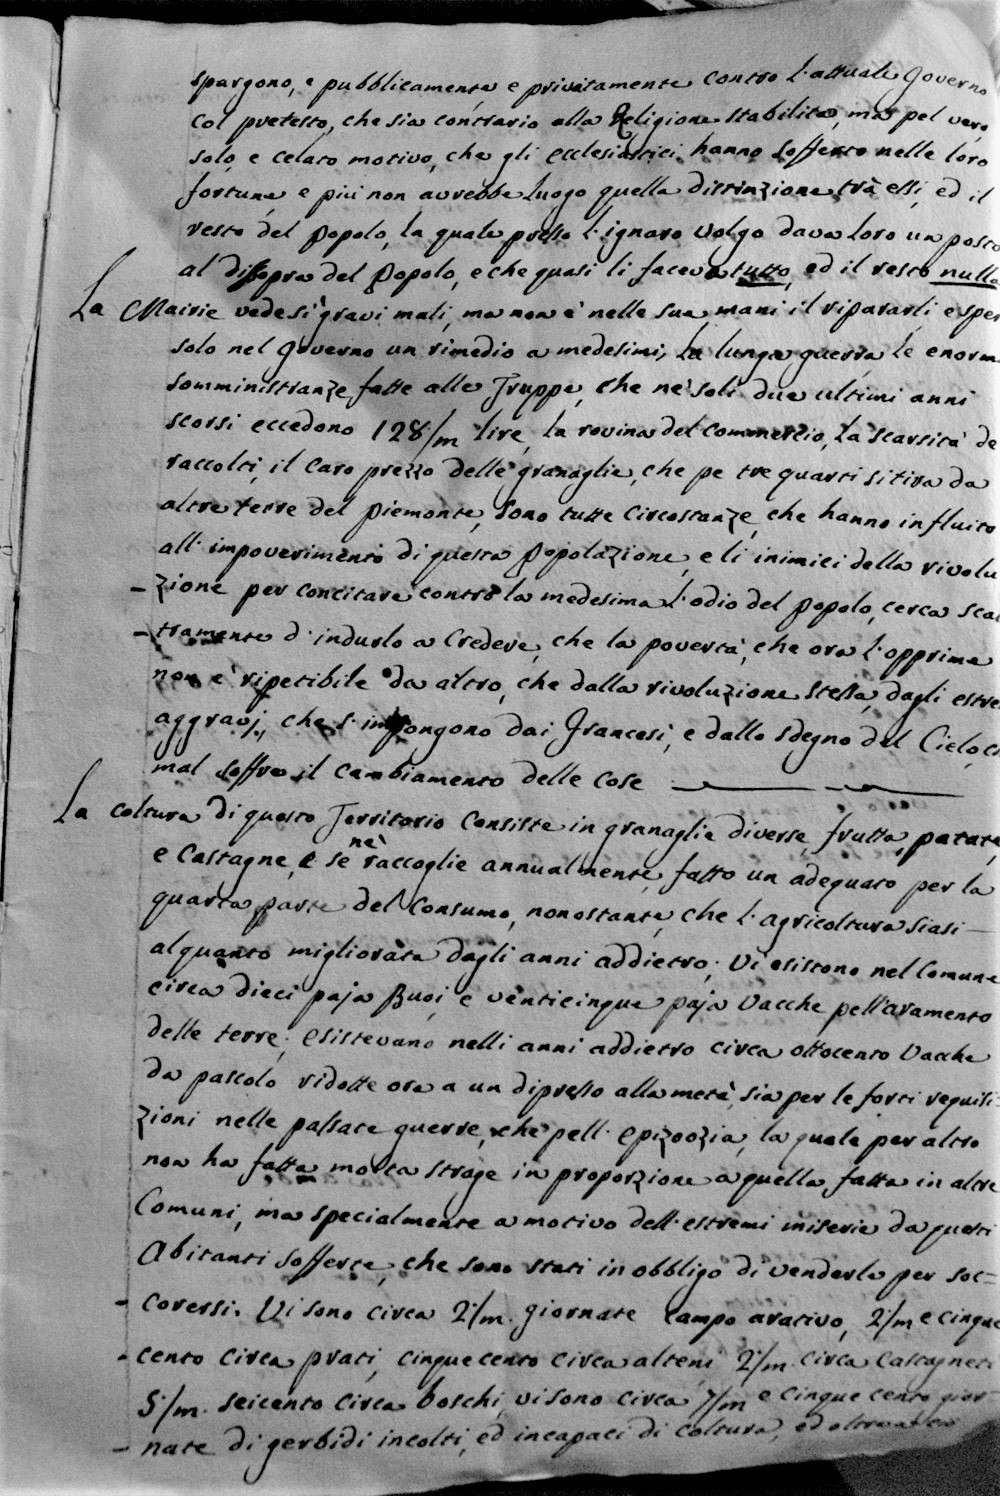 spargono, e pubblicamente e privatamente contro l'attuale Governo
col pretesto, che sia contrario alla Religione stabilita, ma pel vero,
solo, e celato motivo, che gli ecclesiastici hanno sofferto nelle loro
fortune, e più non avrebbe luogo quella distinzione trà essi, ed il
resto del popolo, la quale presso l'ignaro volgo dava loro un posto
al dissopra del Popolo, e che quasi li faceva tutto, ed il resto nulla
La Mairie vede sì gravi mali, ma non è nelle sue mani il ripararli e sper
solo nel Governo un rimedio a medesimi, La lunga guerra, le enorm
somministranze fatte alle Truppe, che ne' soli due ultimi anni
scorsi eccedono 128/m lire, la rovina del commercio, la scarsità de
raccolti, il caro prezzo delle granaglie, che pe tre quarti si tira da
altre terre del piemonte, sono tutte circostanze, che hanno influito
all'impoverimento di questa popolazione, e li inimici della rivolu
-zione per concitare contro la medesima l'odio del popolo, cerca scal
-tramente d'indurlo a credere, che la povertà, che ora l'opprime
non è ripetibile da altro, che dalla rivoluzione stessa, dagli estre
aggravj, che s'impongono dai Francesi, e dallo sdegno del Cielo, ch
mal soffre il cambiamento delle cose
La coltura di questo Territorio consiste in granaglie diverse, frutta, patate,
e castagne, e se nè raccoglie annualmente, fatto un adequato per la
quarta parte del consumo, nonostante, che l'agricoltura siasi
alquanto migliorata dagli anni addietro; Vi esistono nel Comune
circa dieci paja Buoi, e venticinque paja vacche pell'aramento
delle terre; esistevano nelli anni addietro circa ottocento vacche
da pascolo ridotte ora a un dipresso alla metà, sia per le forti requisi-
zioni nelle passate guerre, che pell'epizoozia, la quale per altro
non ha fatta molta strage in proporzione a quella fatta in altre
Comuni, ma specialmente a motivo dell'estremi miserie da questi
Abitanti sofferte, che sono stati in obbligo di venderle per soc=
-corersi. Vi sono circa 2/m giornate campo arativo, 2/m e cinque
-cento circa prati, cinquecento circa alteni, 2/m circa castagneti
5/m. seicento circa boschi, vi sono circa 7/m e cinque cento gior-
-nate di gerbidi incolti, ed incapaci di coltura, ed